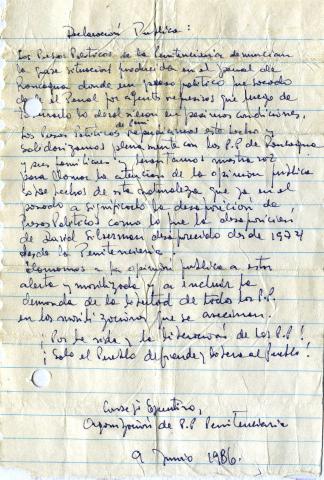 Declaración Pública:
Los Presos Políticos de la Penitenciaría denuncian
la grave situación producida en el penal de
Rancagua donde un preso político fue sacado
de el Penal por agentes represivos que luego de
lo dejaron en pésimas condiciones,
Los Presos Políticos de Penit repudiamos este hecho y
solidarizamos plenamente con los P.P de Rancagua
y sus familiares y levantamos nuestra voz
para llamar la atención de la opinión pública
sobre hechos de esta naturaleza que ya en el
pasado a significado la desaparición de
Presos Políticos como lo fue la desaparición
de David Silberman desaparecido desde 1974
desde la Penitenciaría.
Llamamos a la opinión pública a estar
alerta y movilizada y a incluir la
demanda de la libertad de todos los P.P.
en las movilizaciones que se avecinan.
¡Por la vida y la liberación de los P.P!
¡Solo el Pueblo defiende y libera al Pueblo!
Consejo Ejecutivo,
Organización de P.P Penitenciaría
9 Junio 1986.